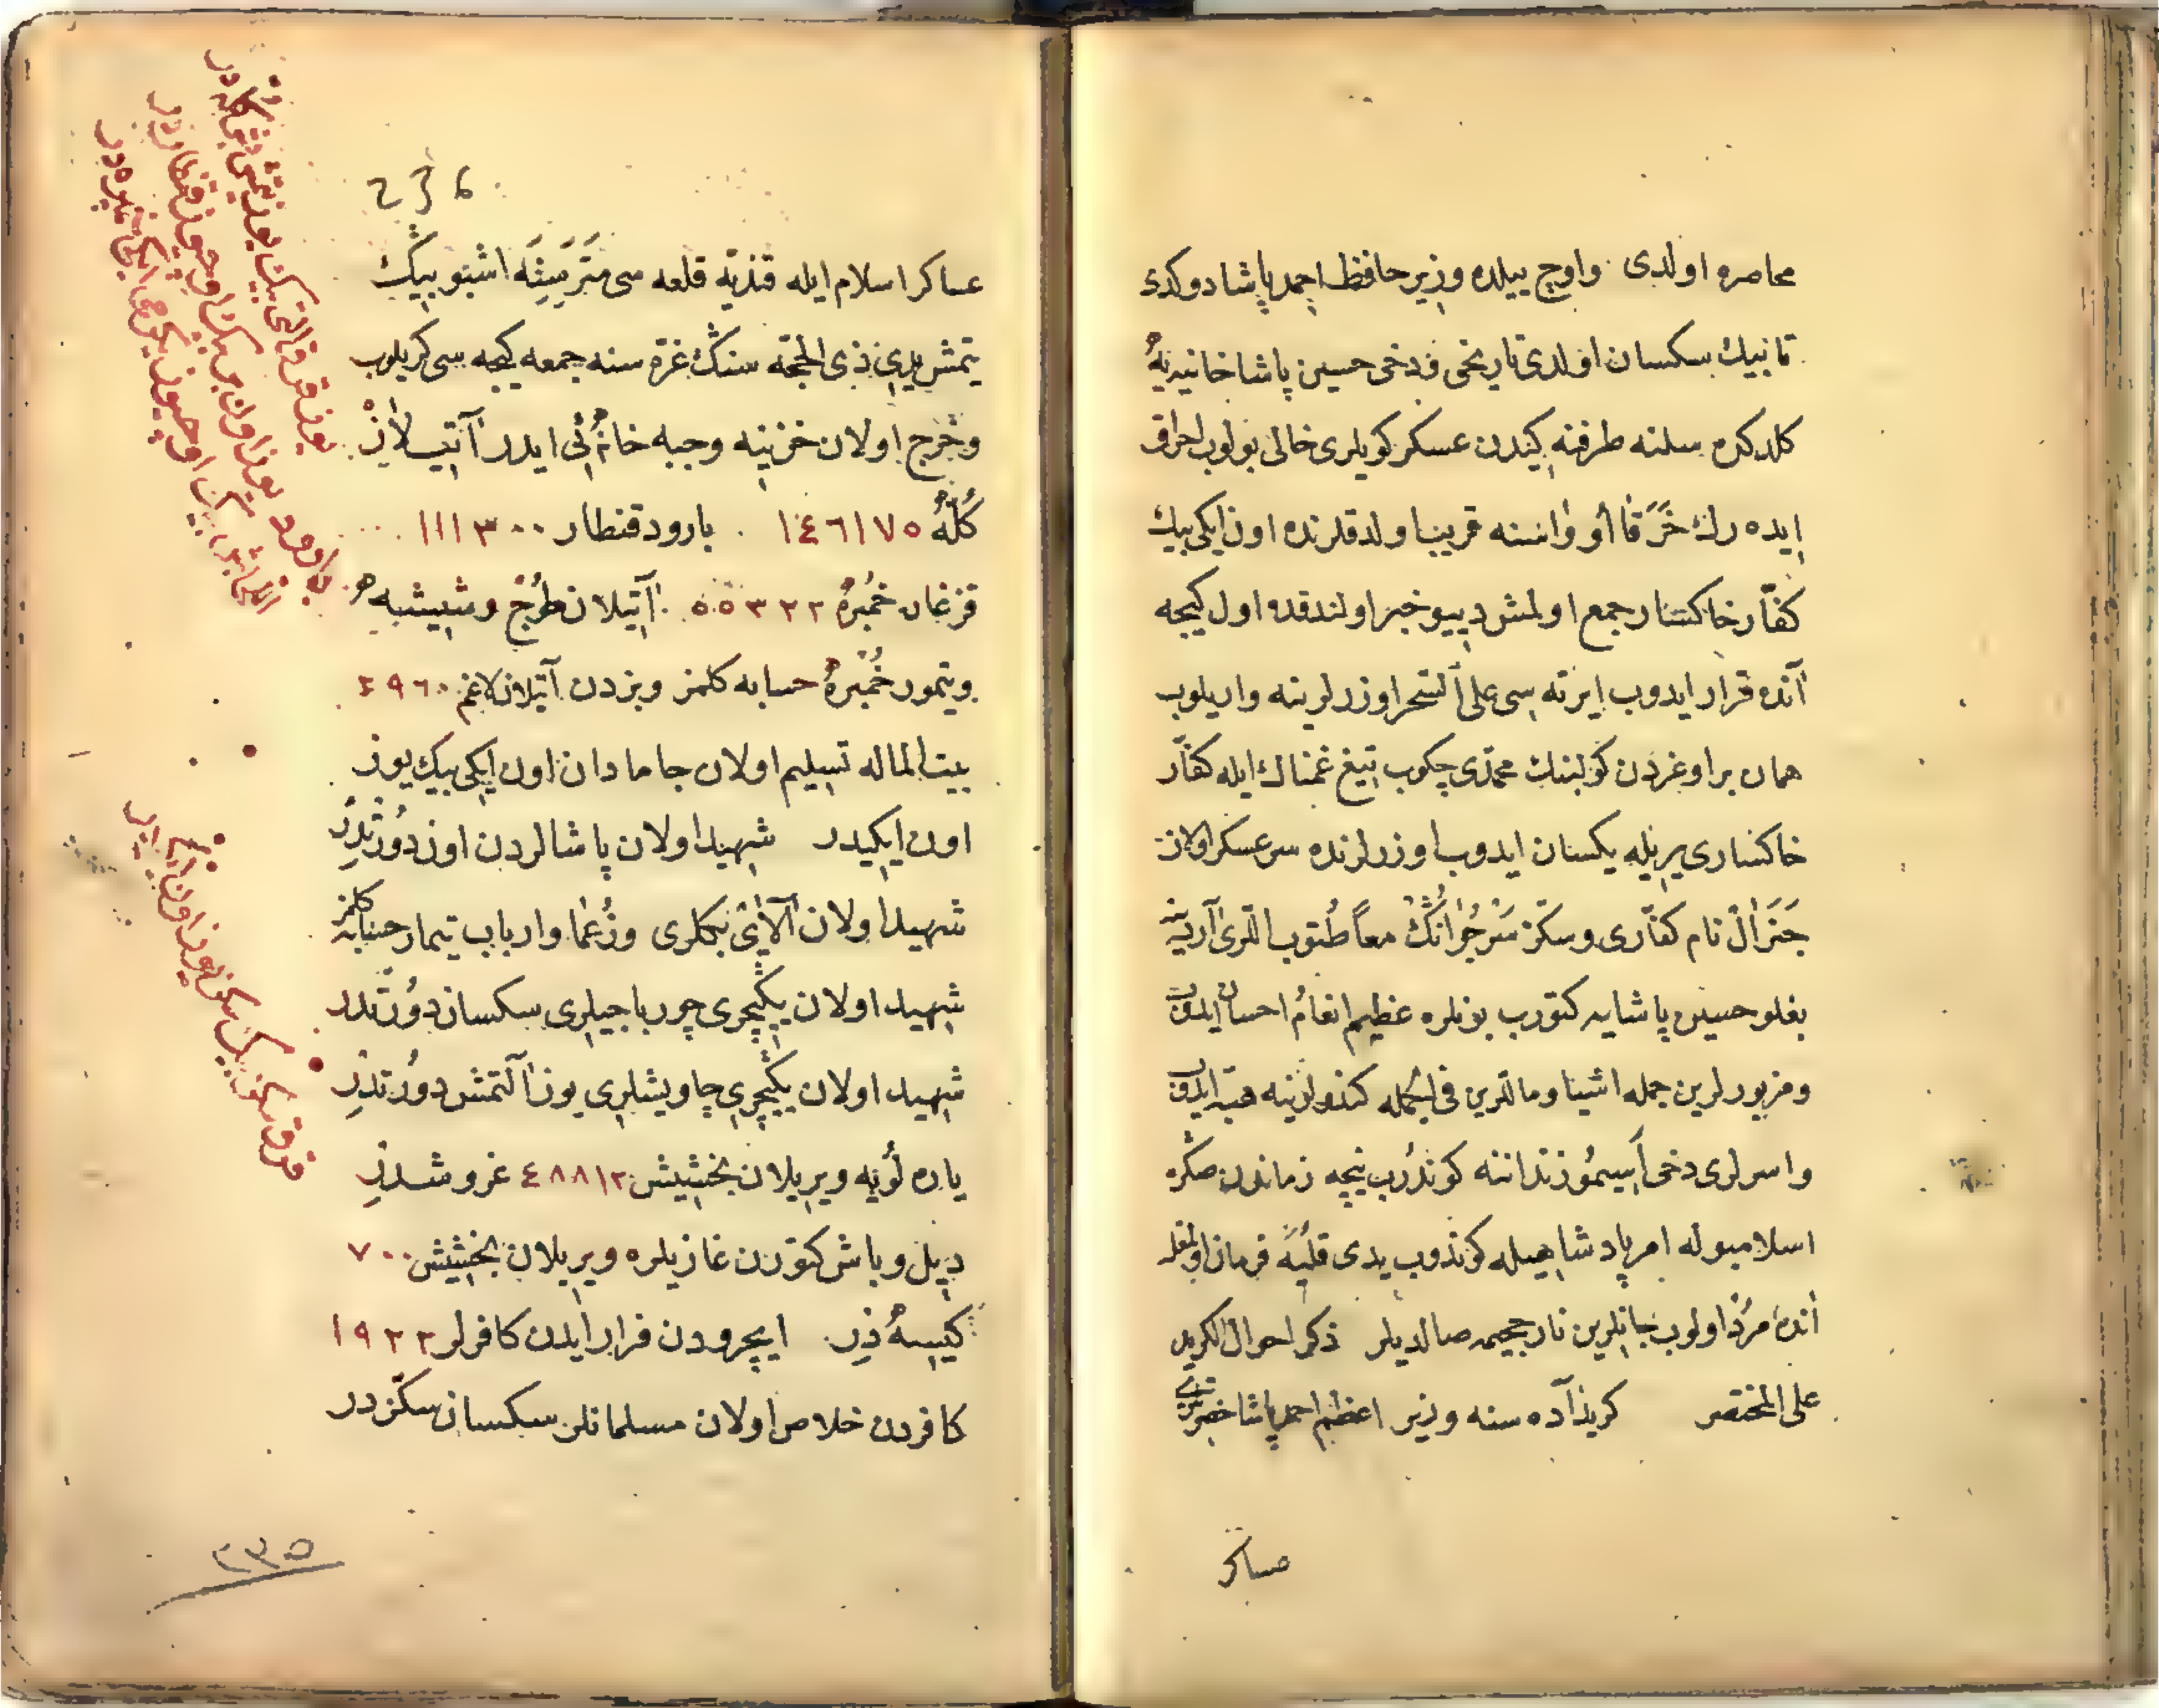 محاصره اولدی واوچ ییلده وزیر حافظ احمد پاشا دوکدی
تا بیك سکسان اولدی تاریخی ودخی حسین پاشا خانیه یه
کلدکده سلنه طرفنه کیدن عسکر کویلری خالی بولوب احراق
ایده رك خرقا أو واسنه قریب اولدقلرنده اون ایکی بیك
کفّار خاکسار جمع اولمش دییو خبر اولندقده اول کیجه
آنده قرار ایدوب ایرته سی علی السّحر اوزرلرینه واریلوب
همان بر اوغردن کولبنك محمّدی چکوب تیغ غمناك ایله کفّار
خاکساری یریله یکسان ایدوب اوزرلرنده سرعسکر اولان
جَنَرال نام کفّاری وسکز معاً طُتوب اللری آردینه
بغلو حسین پاشایه کتورب بونلره عظیم انعام احسان ایدوب
ومزبورلرین جمله اشیا ومالرین فی الجمله کندولرینه هبه ایدوب
واسرلری دخی زنداننه کوندرب نیچه زماندن صکره
اسلامبوله امر پادشاهیله کوندوب یدی قلیه فرمان اولمغله
انده مرد اولوب جانلرین نار جحیمه صالدیلر ذکر احوال الکرید
علی المختصر کرید آده سنه وزیر اعظم احمد پاشا حضرتلری
عساکر
236
عساکر اسلام ایله قندیه قلعه سی متریسنه اشبو بیك
یتمش یدی ذی الحجّه سنك غرّه سنه جمعه کیجه سی کریلوب
وخرج اولان خزینه وجبه خانه ئی ایدر آتیلان
کُلّه ١٤٦١٧٥ بارود قنطار ١١١٣٠٠
قزغان خمبره ٥٥٣٢٢ آتیلان طُرُنج وشیشه
ویتمور خُمبره حسابه کلمز وبزدن آتیلان لاغم ٢٩٦٠
بیت الماله تسلیم اولان جامادان اون ایکی بیك یوز
اون ایکیدر شهید اولان پاشالردن اون دورتدر
شهید اولان آلای بکلری وزُعما وارباب تیمار حسابه کلمز
شهید اولان یکیچری چورباجیلری سکسان دورتدر
شهید اولان یکیچری چاویشلری یوز آلتمش دورتدر
یاره لویه ویریلان بخشیش ٤٨٨١٢ غروشدر
دیل وباش کتورن غازیلره ویریلان بخشیش ٧٠٠
کیسه در ایچرودن فرار ایدن کافرلر ١٩٢٢
کافردن خلاص اولان مسلمانلر سکسان سکزدر
یوز قرق التی بیك یوز یتمش بش کله در
بارود یوز اون بر بیك اوچیوز قنطاردر
اللی بش بیك اوچیوز یکرمی ایکی خمبره در
قرق سکز بیك سکز یوز اون ایکیدر
٢٣٥